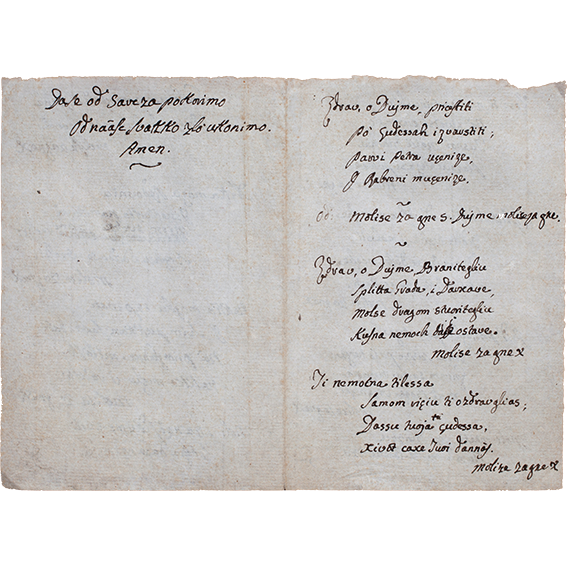 Da se od Saveza poklonimo
Od nààse svakko zlo uklonimo.
Amen.
Zdrav, o Dujme, priasti
Po çudessah izvarstiti;
Parvi Petra uçeniçe,
I Rabreni muçeniçe.
Od Molise za gne S. Dujme molise za gne.
Zdrav, o Dujme, Branitegliu
Splitta Grada, i Darxave,
Molse dragom stvoritegliu
Kuxna nemoch ostave.
Molise za gne x
Ti nemotna tilessa
Samom riçiu ti ozdravglias;
Dassu tvoja çudessa,
xivot caxe Tvoi dannas.
moli za gne x